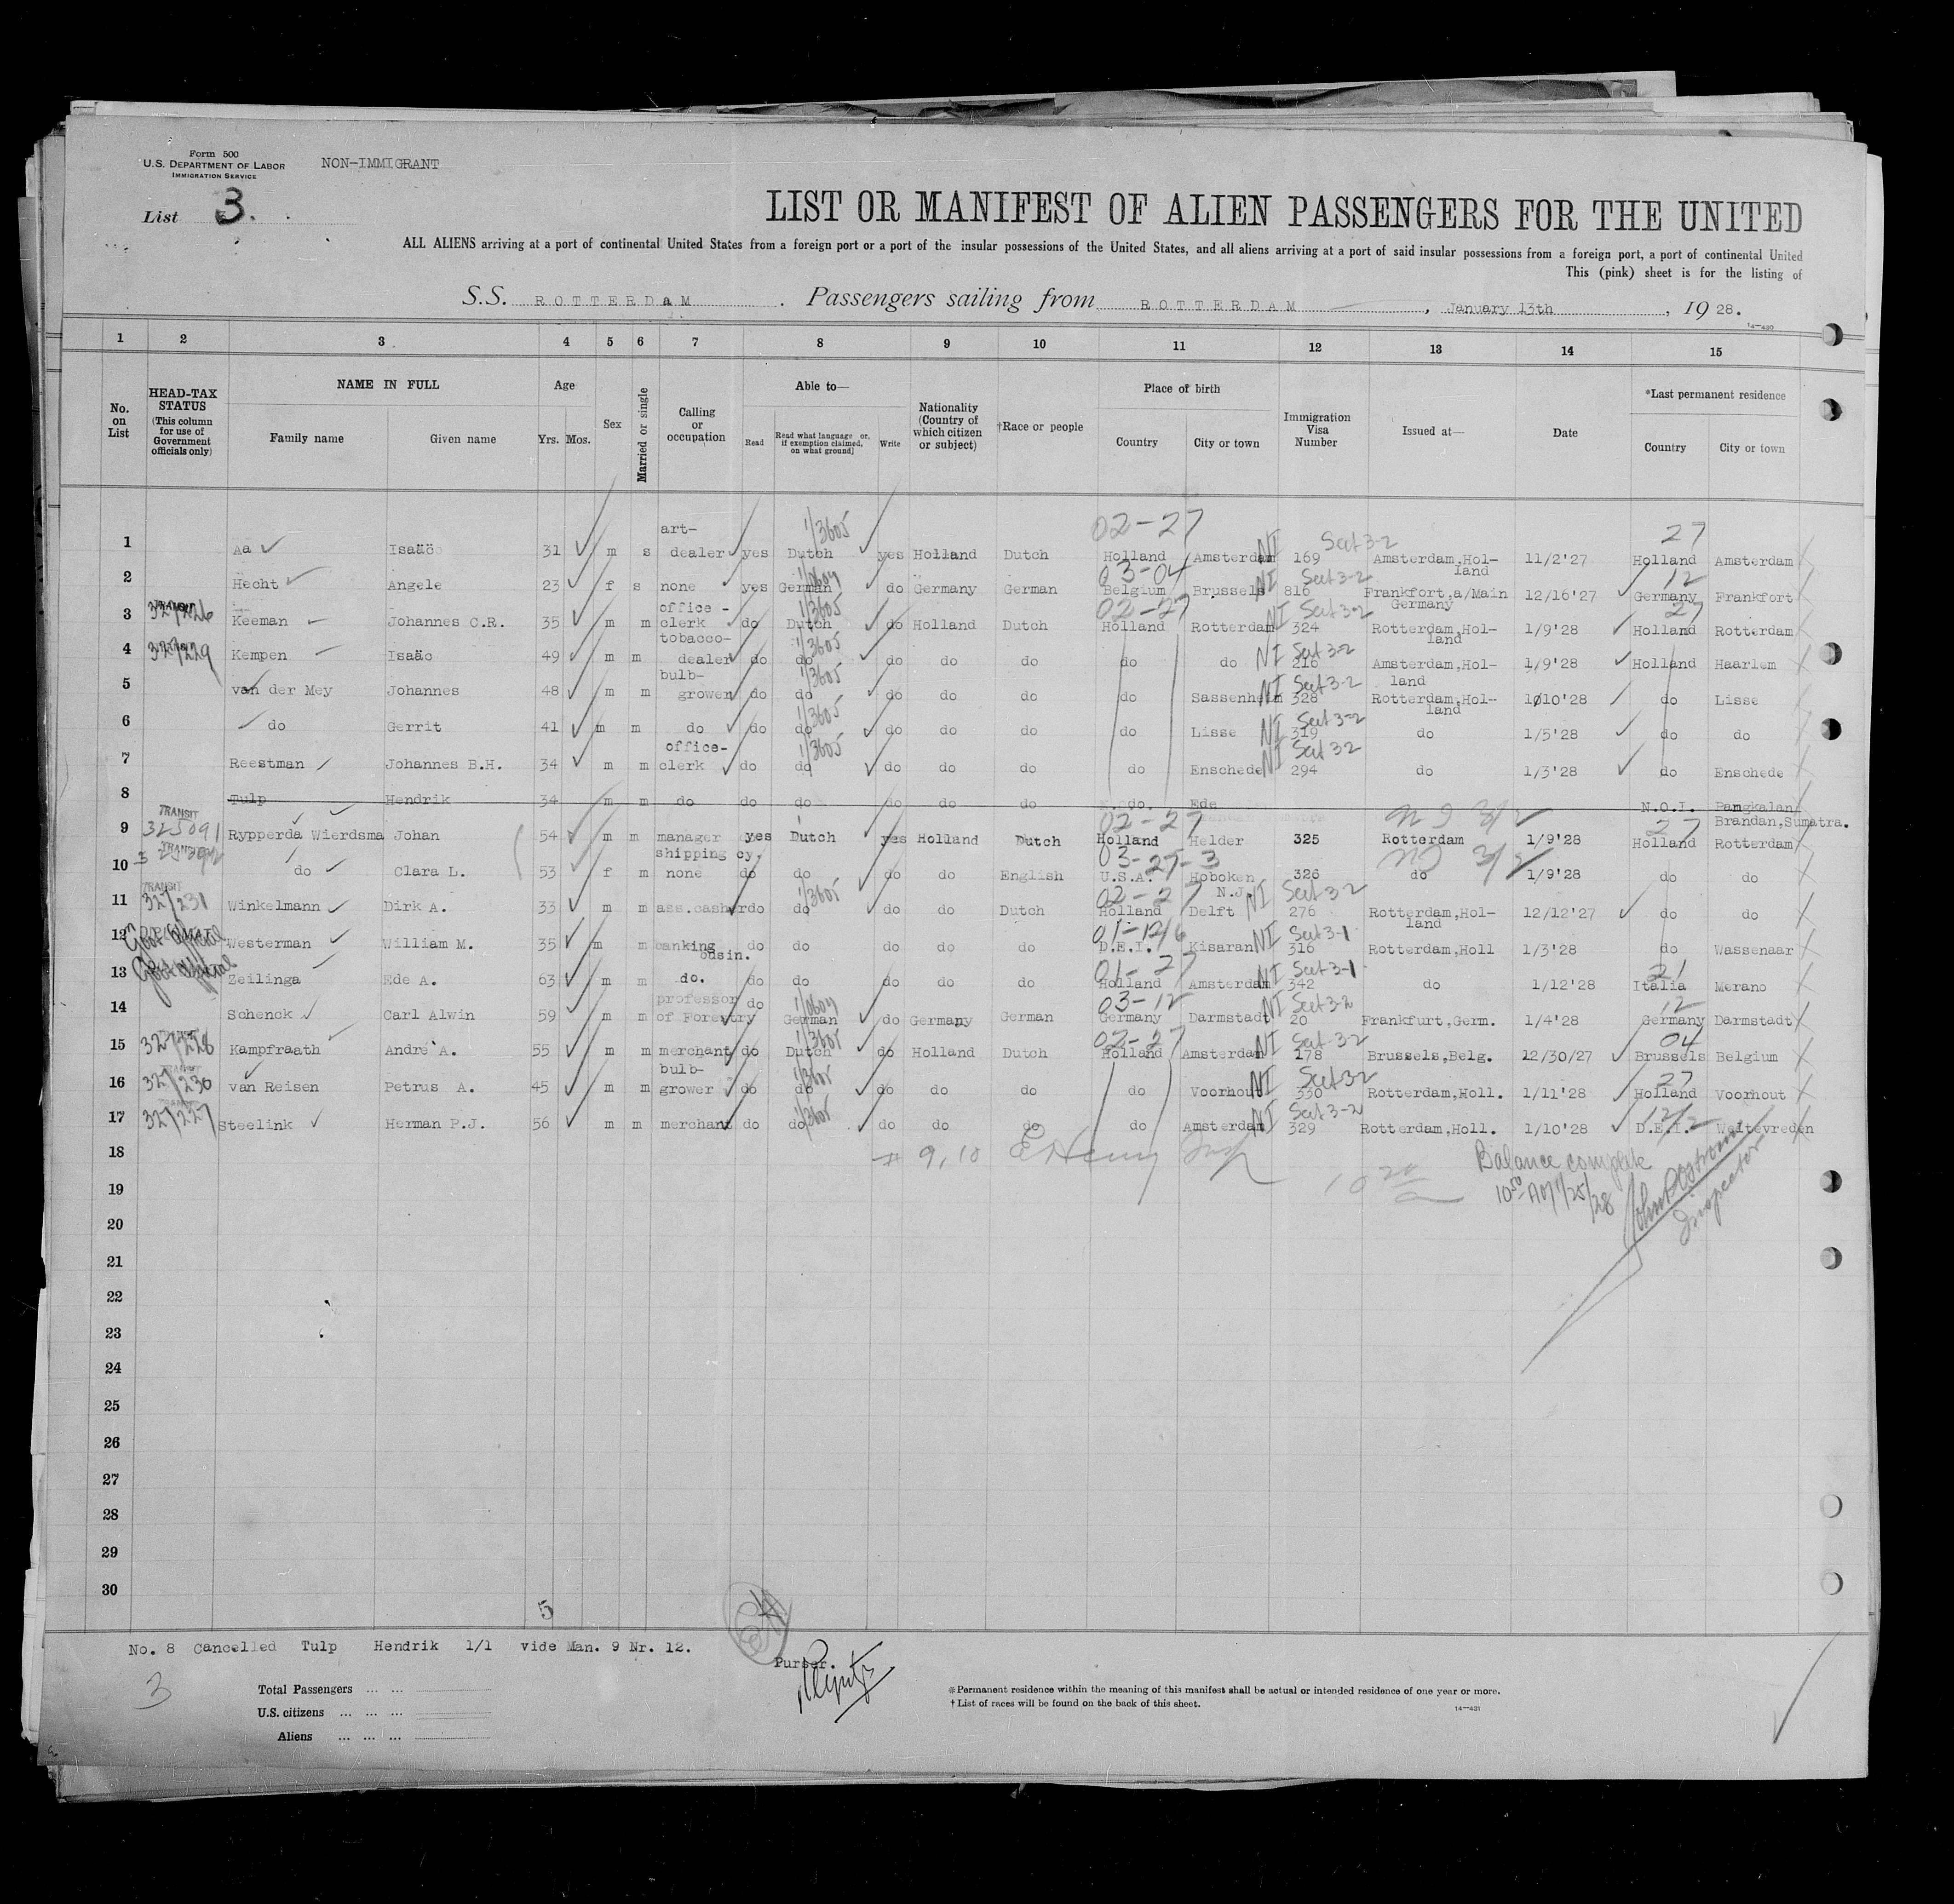 Form 500
U.S. DEPARTMENT OF LABOR
IMMIGRATION SERVICE
NON-IMMIGRANT
List 3.
LIST OR MANIFEST OF ALIEN PASSENGERS FOR THE UNITED
ALL ALIENS arriving at a port of continental United States from a foreign port or a port of the insular possessions of the United States, and all aliens arriving at a port of said insular possessions from a foreign port, a port of continental United
This (pink) sheet is for the listing of
S.S. ROTTERDAM. Passengers sailing from ROTTERDAM, January 13th, 1928.
14-420
1 2 3 4 5 6 7 8 9 10 11 12 13 14 15
No. on List
HEAD-TAX STATUS (This column for use of Government officials only)
NAME IN FULL
Family name Given name
Age
Yrs. Mos.
Sex
Married or single
Calling or occupation
Able to—
Read Read what language or, if exemption claimed, on what ground] Write
Nationality (Country of which citizen or subject)
†Race or people
Place of birth
Country City or town
Immigration Visa Number
Issued at—
Date
*Last permanent residence
Country City or town
1 Aa Isaäc 31 m s art-dealer yes Dutch 1/3605 yes Holland Dutch 02-27 Holland Amsterdam NI 169 Sect 3-2 Amsterdam,Hol-land 11/2'27 27 Holland Amsterdam
2 Hecht Angele 23 f s none yes German do Germany German 03-04 Belgium Brussels NI 816 Sect 3-2 Frankfort,a/Main Germany 12/16'27 12 Germany Frankfort
3 TRANSIT 327226 Keeman Johannes C.R. 35 m m office-clerk do Dutch 1/3605 do Holland Dutch 02-27 Holland Rotterdam NI 324 Sect 3-2 Rotterdam,Hol-land 1/9'28 27 Holland Rotterdam
4 327229 Kempen Isaäc 49 m m tobacco-dealer do do 1/3605 do do do do do NI 216 Sect 3-2 Amsterdam,Hol-land 1/9'28 Holland Haarlem
5 van der Mey Johannes 48 m m bulb-grower do do 1/3605 do do do do Sassenheim NI 328 Sect 3-2 Rotterdam,Hol-land 1/10'28 do Lisse
6 do Gerrit 41 m m do do do 1/3605 do do do do Lisse NI 319 Sect 3-2 do 1/5'28 do do
7 Reestman Johannes B.H. 34 m m office-clerk do do 1/3605 do do do do Enschede NI 294 Sect 32 do 1/3'28 do Enschede
8 Tulp Hendrik 34 m m do do do do do do do. Ede N.O.I. Pangkalan Brandan,Sumatra.
9 TRANSIT 325091 Rypperda Wierdsma Johan 54 m m manager shipping cy. yes Dutch yes Holland Dutch 02-27 Holland Helder 325 Rotterdam 1/9'28 27 Holland Rotterdam
10 TRANSIT do Clara L. 53 f m none do do do do English 03-27-3 U.S.A. Hoboken N.J. 326 do 1/9'28 do do
11 TRANSIT 327231 Winkelmann Dirk A. 33 m m ass.cashier do do 1/3605 do do Dutch 02-27 Holland Delft NI 276 Sect 3-2 Rotterdam,Hol-land 12/12'27 do do
12 Gov't Official Westerman William M. 35 m m banking busin. do do do do do D.E.I. Kisaran NI 316 Sect 3-1 Rotterdam,Holl 1/3'28 do Wassenaar
13 Gov't Official Zeilinga Ede A. 63 m m do. do do do do do 01-27 Holland Amsterdam NI 342 Sect 3-1 do 1/12'28 21 Italia Merano
14 Schenck Carl Alwin 59 m m professor of Forestry do German do Germany German 03-12 Germany Darmstadt NI 20 Sect 3-2 Frankfurt,Germ. 1/4'28 12 Germany Darmstadt
15 327228 Kampfraath André A. 55 m m merchant do Dutch 1/3605 do Holland Dutch 02-27 Holland Amsterdam NI 178 Sect 3-2 Brussels,Belg. 12/30/27 04 Brussels Belgium
16 327230 van Reisen Petrus A. 45 m m bulb-grower do do 1/3605 do do do do Voorhout NI 330 Sect 3-2 Rotterdam,Holl. 1/11'28 27 Holland Voorhout
17 327227 Steelink Herman P.J. 56 m m merchant do do 1/3605 do do do do Amsterdam NI 329 Sect 3-2 Rotterdam,Holl. 1/10'28 D.E.I. Weltevreden
18 # 9, 10 E Henry Insp Balance complete
19 10 50 AM 1/25/28 Inspector
20
21
22
23
24
25
26
27
28
29
30
5
No. 8 Cancelled Tulp Hendrik 1/1 vide Man. 9 Nr. 12.
Purser.
3
Total Passengers ... ...
U.S. citizens ... ... ...
Aliens ... ... ...
*Permanent residence within the meaning of this manifest shall be actual or intended residence of one year or more.
†List of races will be found on the back of this sheet.
14-421